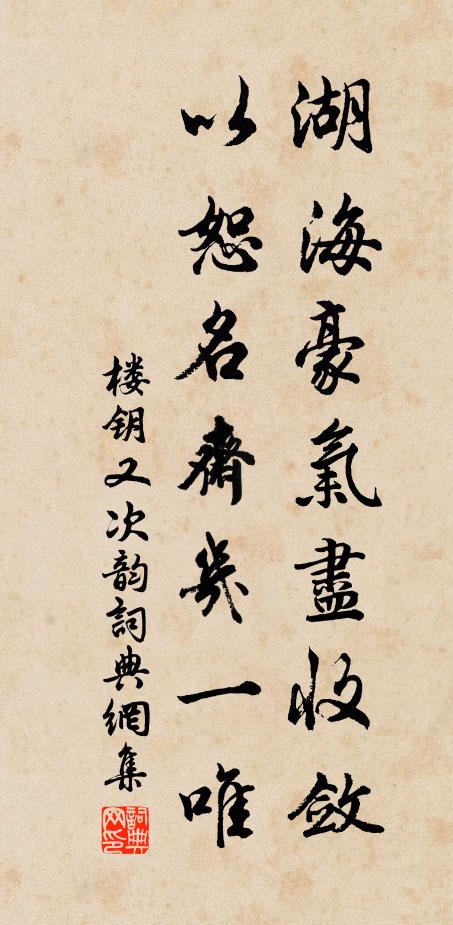 湖海豪氣盡收斂
以恕名齋幾一唯
楼钥又次韵詞典網集
詞典网印